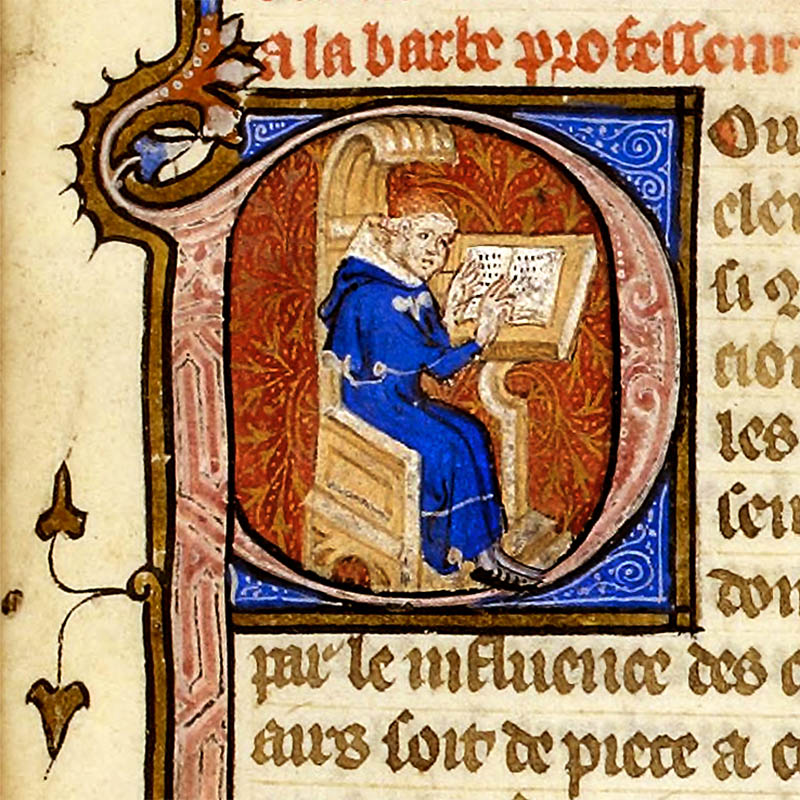 a la barbe professeur
POu
si
cion
les
don
par le influence des
airs soit de piece a